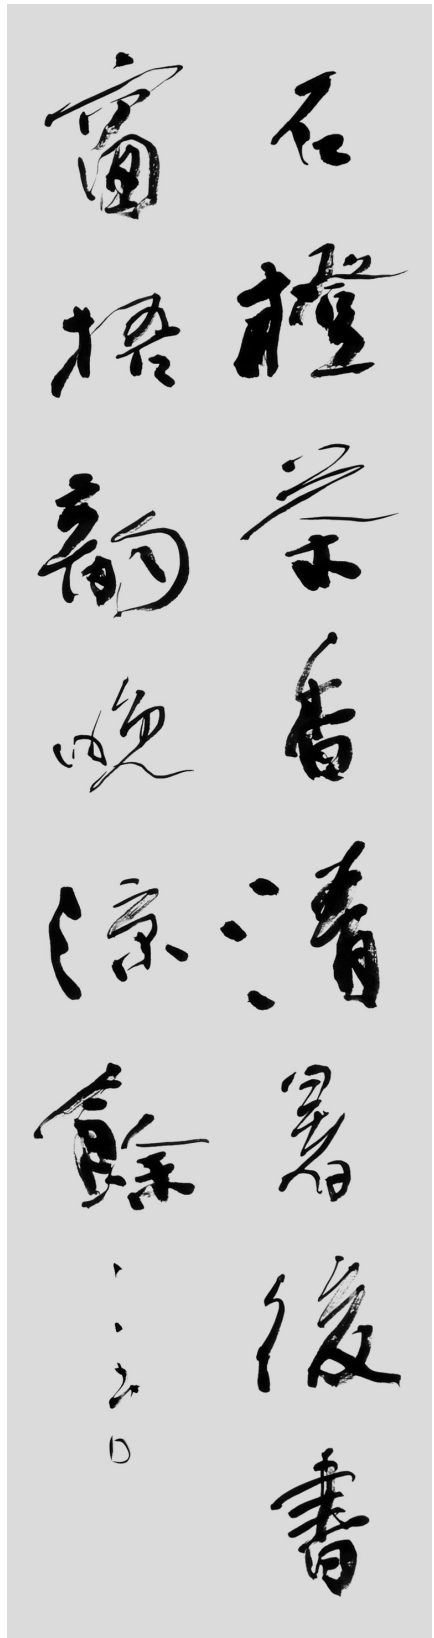 石橙茶香清暑後書
窗梧韻晚涼餘